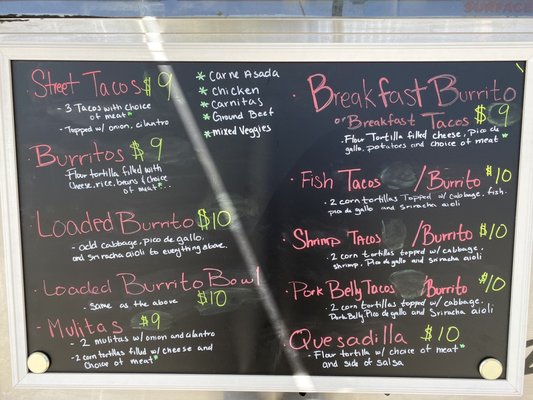 SURFACE
Street Tacos $9
- 3 Tacos with choice
of meat*
- Topped w/ onion, cilantro
* Carne Asada
* Chicken
* Carnitas
* Ground Beef
* mixed Veggies
Burritos $9
- Flour tortilla filled with
cheese, rice, beans & choice
of meat*...
Loaded Burrito $10
- add cabbage, pico de gallo,
and sriracha aioli to everything above.
Loaded Burrito Bowl
- same as the above $10
Mulitas $9
- 2 mulitas w/ onion and cilantro
- 2 corn tortillas filled w/ cheese and
choice of meat*
Breakfast Burrito
or Breakfast Tacos $9
- Flour Tortilla filled cheese, pico de
gallo, potatoes and choice of meat*
Fish Tacos /Burrito $10
- 2 corn tortillas Topped w/ cabbage, fish,
pico de gallo and sriracha aioli
Shrimp Tacos /Burrito $10
- 2 corn tortillas Topped w/ cabbage,
shrimp, Pico de gallo and sriracha aioli
Pork Belly Tacos /Burrito $10
- 2 corn tortillas topped w/ cabbage,
Pork Belly, Pico de gallo and Sriracha aioli
Quesadilla $10
- Flour tortilla w/ choice of meat*
and side of salsa